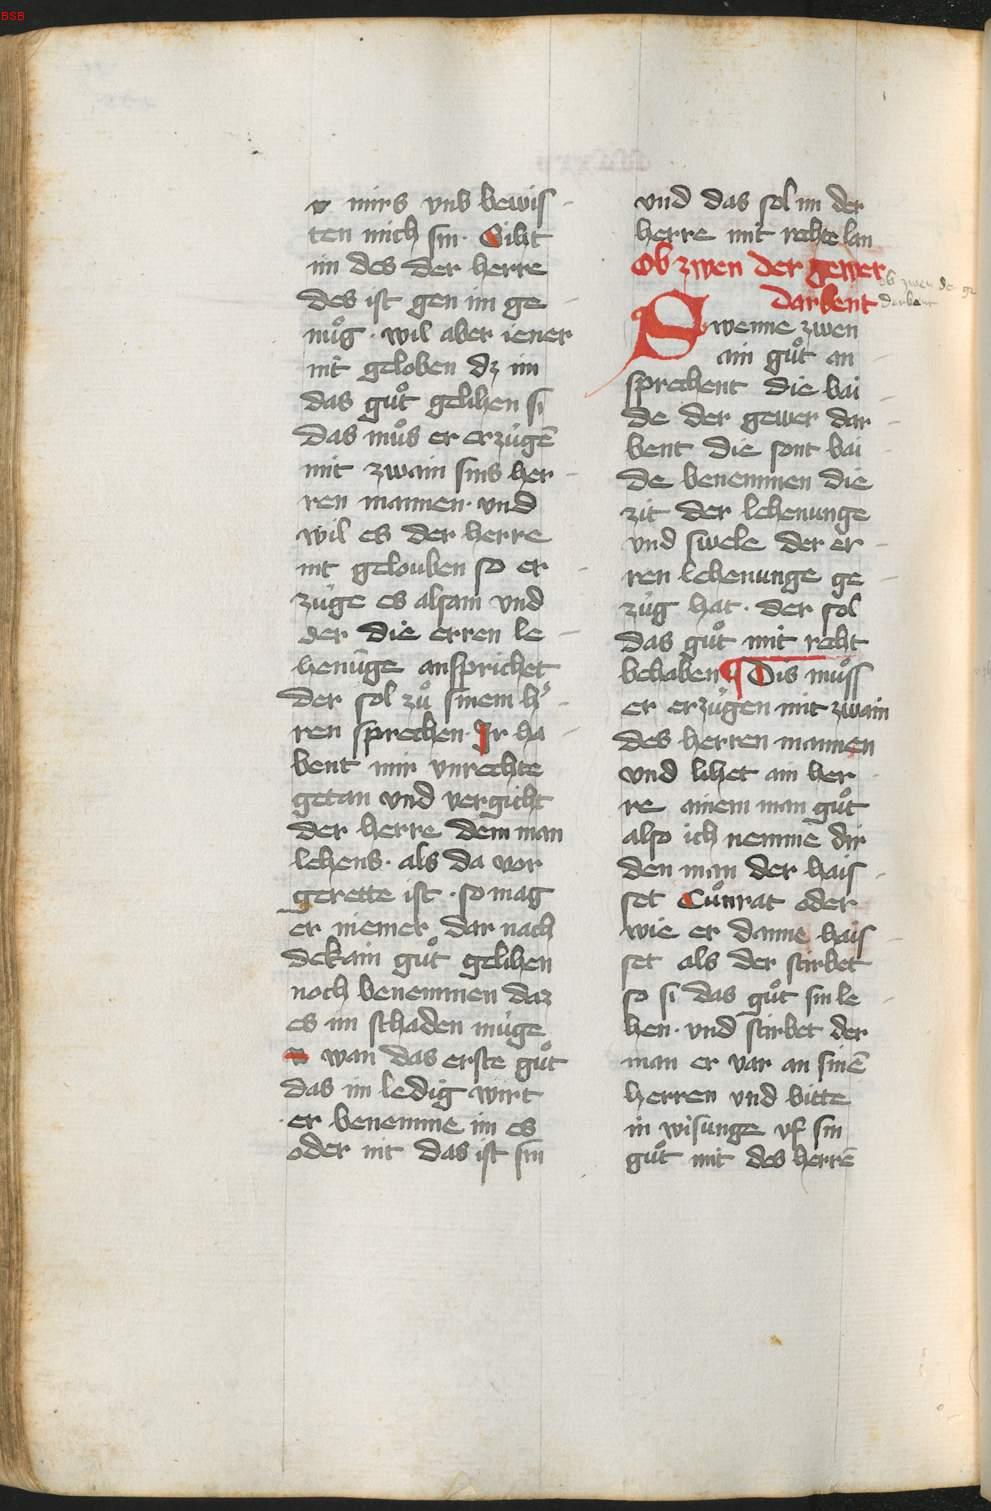 BSB
v mirs vnd bewis
ten mich sin. Gibt
im des der herre
des ist gen im ge
nuͦg. wil aber iener
nit geloben dz im
das guͦt gelihen si
das muͦs er erzúgē
mit zwain sins her
ren mannen. und
wil es der herre
nit gelouben so er
zúge es alsam und
der die erren le
henūge ansprichet
der sol zuͦ sinem h̾
ren sprechen. Ir ha
bent mir vnrechte
getan und vergicht
der herre dem man
lehens. als da vor
gerette ist. so mag
er niemer dar nach
dekain guͦt gelihen
noch benemmen daz
es im schaden múge
wan das erste guͦt
das im ledig wirt
er benemme im es
oder nit das ist sin
vnd das sol im der
herre mit rechte lan
Ob zwen der gewer
darbent
ob zwen de ge
darbent
Swenne zwen
ain guͦt an
sprechent die bai
de der gewer dar
bent die sont bai
de benemmen die
zit der lehenunge
und swele der er
ren lehenunge ge
zúg hat. der sol
das guͦt mit recht
behaben ¶ Dis muͦss
er erzúgen mit zwain
des herren mannen
und lihet ain her
re ainem man guͦt
also ich nemme dir
den man der hais
set Cuͦnrat oder
wie er danne hais
set als der stirbet
so si das guͦt sin le
hen. und stirbet der
man er var an sinē
herren und bitte
in wisunge vf sin
guͦt mit des herrē